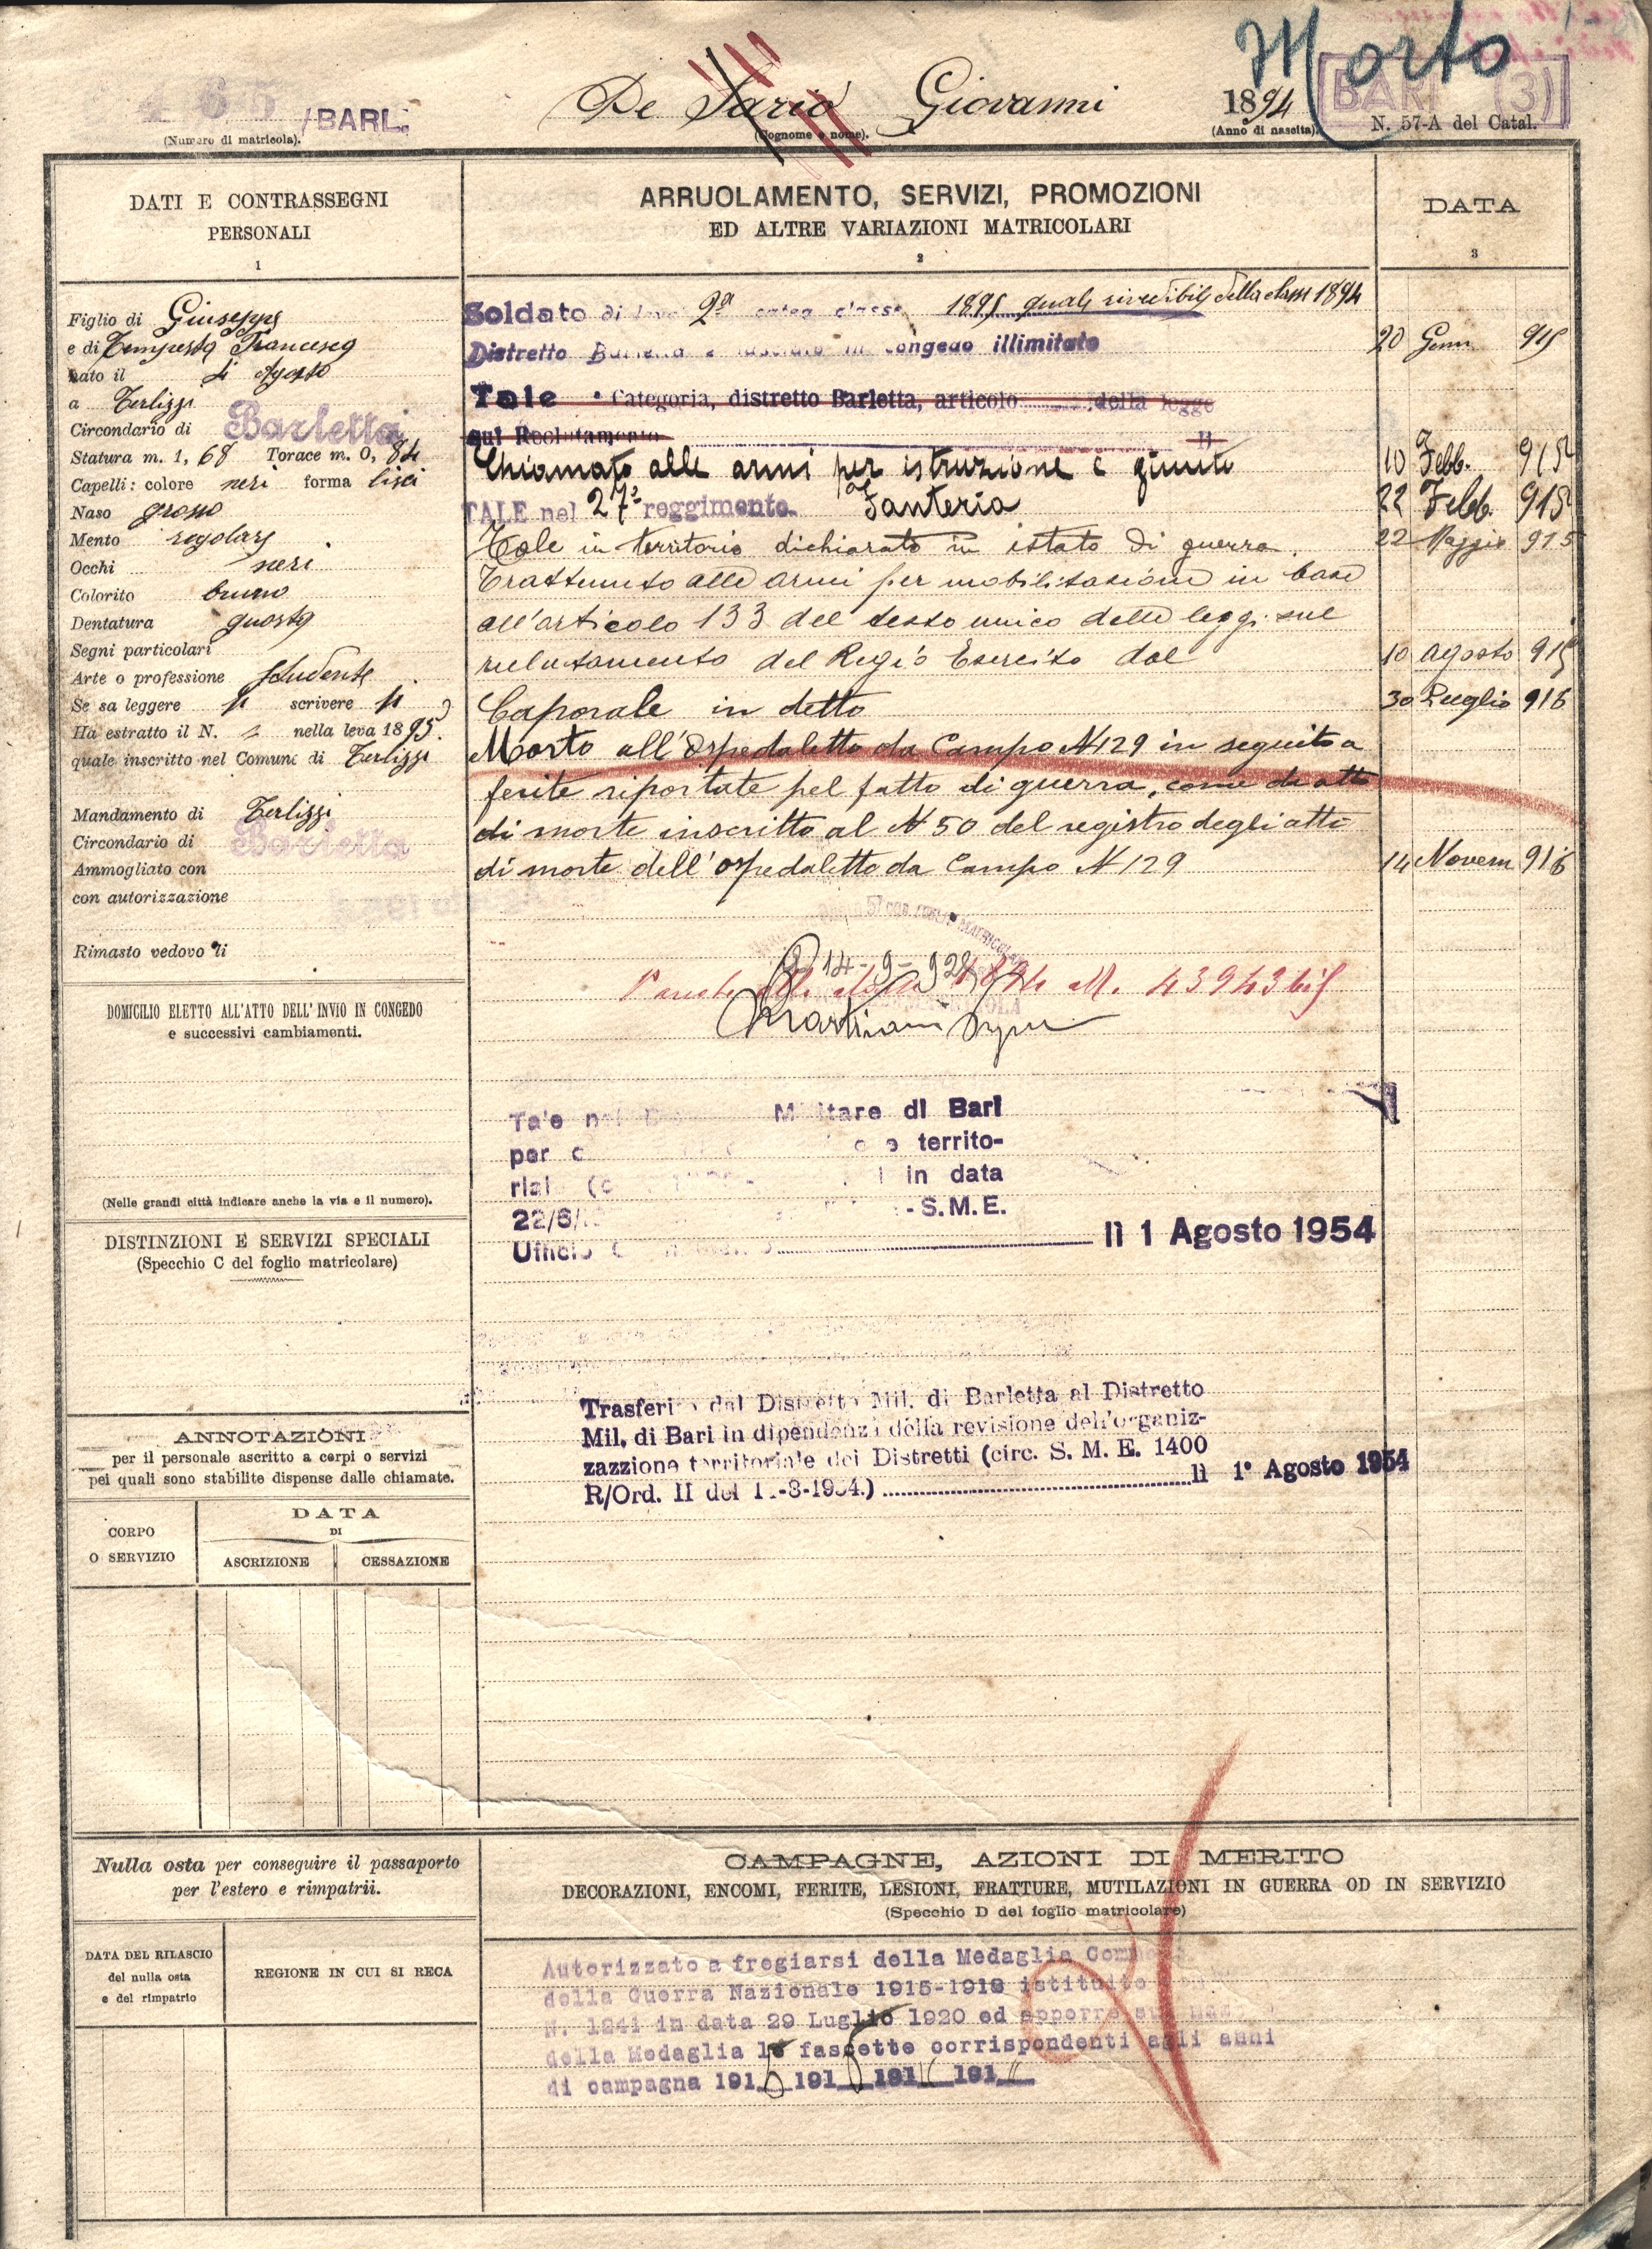 Morto
465 /BARL.
(Numero di matricola).
De Sario Giovanni
(Cognome e nome).
1894
(Anno di nascita).
BARI (3)
N. 57-A del Catal.
DATI E CONTRASSEGNI
PERSONALI
1
Figlio di Giuseppe
e di Tempesta Francesca
nato il 4 Agosto
a Terlizzi
Circondario di Barletta
Statura m. 1, 68 Torace m. 0, 84
Capelli: colore neri forma lisci
Naso grosso
Mento regolare
Occhi neri
Colorito bruno
Dentatura guasta
Segni particolari
Arte o professione studente
Se sa leggere si scrivere si
Ha estratto il N. nella leva 1895
quale inscritto nel Comune di Terlizzi
Mandamento di Terlizzi
Circondario di Barletta
Ammogliato con
con autorizzazione
Rimasto vedovo li
DOMICILIO ELETTO ALL'ATTO DELL'INVIO IN CONGEDO
e successivi cambiamenti.
(Nelle grandi città indicare anche la via e il numero).
DISTINZIONI E SERVIZI SPECIALI
(Specchio C del foglio matricolare)
ANNOTAZIONI
per il personale ascritto a corpi o servizi
pei quali sono stabilite dispense dalle chiamate.
CORPO
O SERVIZIO
DATA
DI
ASCRIZIONE
CESSAZIONE
ARRUOLAMENTO, SERVIZI, PROMOZIONI
ED ALTRE VARIAZIONI MATRICOLARI
2
DATA
3
Soldato di leva 2ª categ classe 1895 quale rivedibile della classe 1894
Distretto Barletta e lasciato in congedo illimitato 20 Genn. 915
Tale Categoria, distretto Barletta, articolo della legge
sul Reclutamento li
Chiamato alle armi per istruzione e giunto 10 Febb. 915
TALE nel 27° reggimento Fanteria 22 Febb. 915
Tale in territorio dichiarato in istato di guerra. 22 Maggio 915
Trattenuto alle armi per mobilitazione in base
all'articolo 133 del testo unico delle leggi sul
reclutamento del Regio Esercito dal 10 agosto 915
Caporale in detto 30 Luglio 916
Morto all'Ospedaletto da Campo N 129 in seguito a
ferite riportate pel fatto di guerra, come da atto
di morte inscritto al N 50 del registro degli atti
di morte dell'ospedaletto da Campo N 129 14 Novem 916
14-9-928
1894 M. 43943 bis
Tale nel Militare di Bari
per territo-
riale in data
22/6/ - S.M.E.
Ufficio lì 1 Agosto 1954
Trasferito dal Distretto Mil. di Barletta al Distretto
Mil. di Bari in dipendenza della revisione dell'organiz-
zazzione territoriale dei Distretti (circ. S. M. E. 1400
R/Ord. II del -3-1954.) lì 1° Agosto 1954
Nulla osta per conseguire il passaporto
per l'estero e rimpatrii.
DATA DEL RILASCIO
del nulla osta
e del rimpatrio
REGIONE IN CUI SI RECA
CAMPAGNE, AZIONI DI MERITO
DECORAZIONI, ENCOMI, FERITE, LESIONI, FRATTURE, MUTILAZIONI IN GUERRA OD IN SERVIZIO
(Specchio D del foglio matricolare)
Autorizzato a fregiarsi della Medaglia
della Guerra Nazionale 1915-1918 istituito
N. 1241 in data 29 Luglio 1920 ed apporre sul
della Medaglia le fascette corrispondenti agli anni
di campagna 1915 1916 191 191